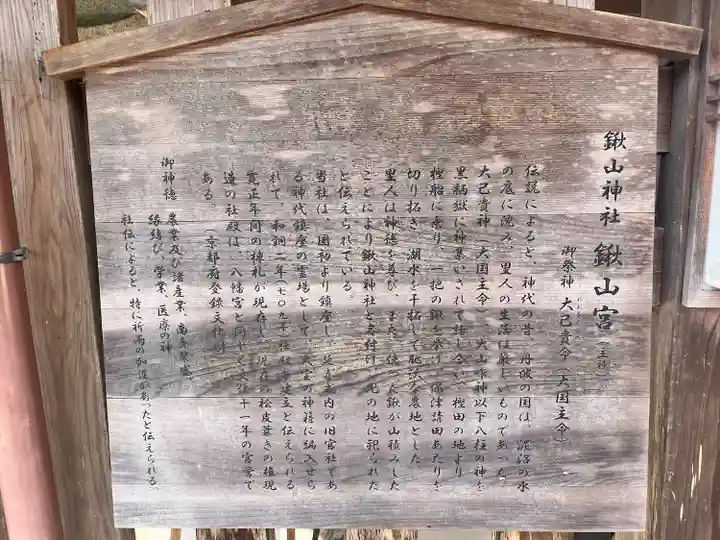 鍬山神社 鍬山宮(主祭神)
御祭神 大己貴命(大国主命)
伝説によると、神代の昔、丹波の国は、泥湖の水
の底に沈み、里人の生活は厳しいものであった
大己貴神(大国主命)、大山咋神以下八柱の神を
黒柄獄に神集いされて話し合い、樫田の地より
樫船に乗り、一把の鍬を挙げ、保津請田あたりを
切り拓き、湖水を干拓して肥沃な農地とした
里人は神徳を尊び、また、使った鍬が山積みした
ことにより鍬山神社と名付け、この地に祀られた
と伝えられている。
当社は、国初より鎮座し、延喜式内の旧官社であ
る神代鎮座の霊場として、大宮の神籍に編入せら
れて、和銅二年(七〇九年)社社を建立と伝えられる
寛正年間の棟札が現存し、現在の桧皮葺きの権現
造の社殿は、八幡宮と同じく文化十一年の宮営で
ある (京都府登録文化財)
御神徳 農業及び諸産業、商売繁盛、
縁結び、学業、医療の神
社伝によると、特に祈雨の加護があったと伝えられる。